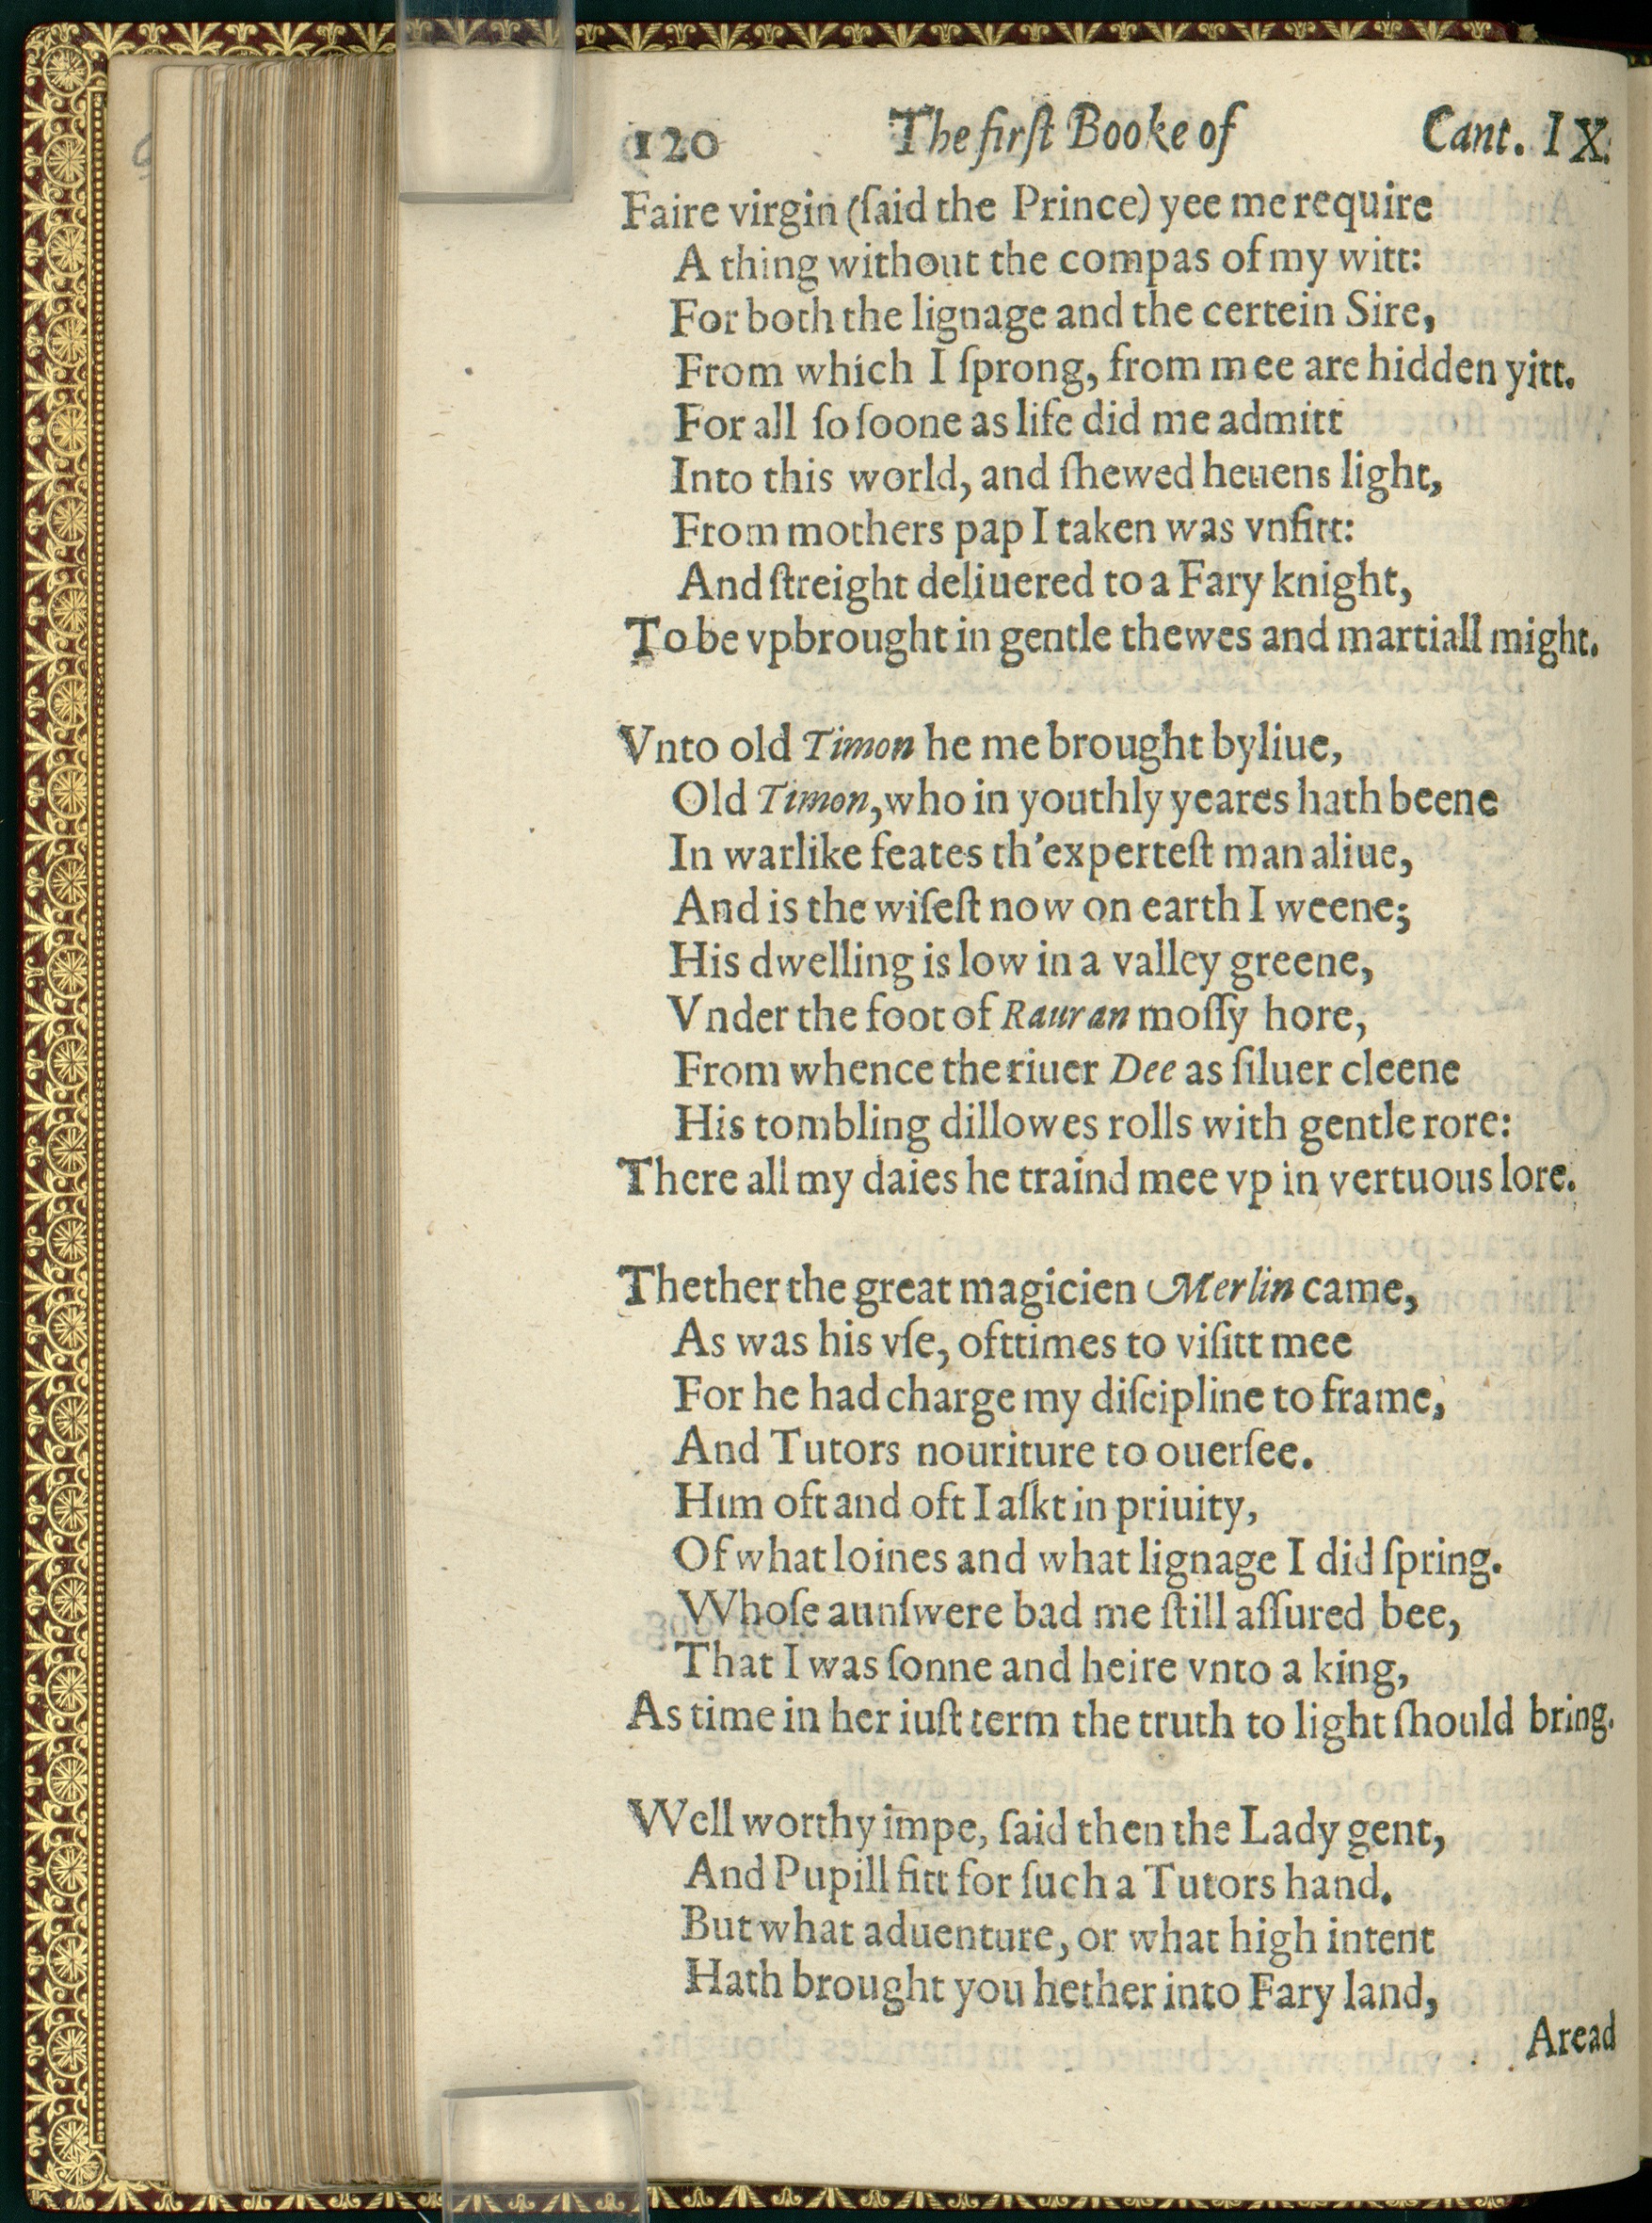 120 The firſt Booke of Cant. IX.
Faire virgin (ſaid the Prince) yee me require
A thing without the compas of my witt:
For both the lignage and the certein Sire,
From which I ſprong, from mee are hidden yitt.
For all ſo ſoone as life did me admitt
Into this world, and ſhewed heuens light,
From mothers pap I taken was vnfitt:
And ſtreight deliuered to a Fary knight,
To be vpbrought in gentle thewes and martiall might.
Vnto old Timon he me brought byliue,
Old Timon, who in youthly yeares hath beene
In warlike feates th'experteſt man aliue,
And is the wiſeſt now on earth I weene;
His dwelling is low in a valley greene,
Vnder the foot of Rauran moſſy hore,
From whence the riuer Dee as ſiluer cleene
His tombling dillowes rolls with gentle rore:
There all my daies he traind mee vp in vertuous lore.
Thether the great magicien Merlin came,
As was his vſe, ofttimes to viſitt mee
For he had charge my diſcipline to frame,
And Tutors nouriture to ouerſee.
Him oft and oft I aſkt in priuity,
Of what loines and what lignage I did ſpring.
Whoſe aunſwere bad me ſtill aſſured bee,
That I was ſonne and heire vnto a king,
As time in her iuſt term the truth to light ſhould bring.
Well worthy impe, ſaid then the Lady gent,
And Pupill fitt for ſuch a Tutors hand.
But what aduenture, or what high intent
Hath brought you hether into Fary land,
Aread